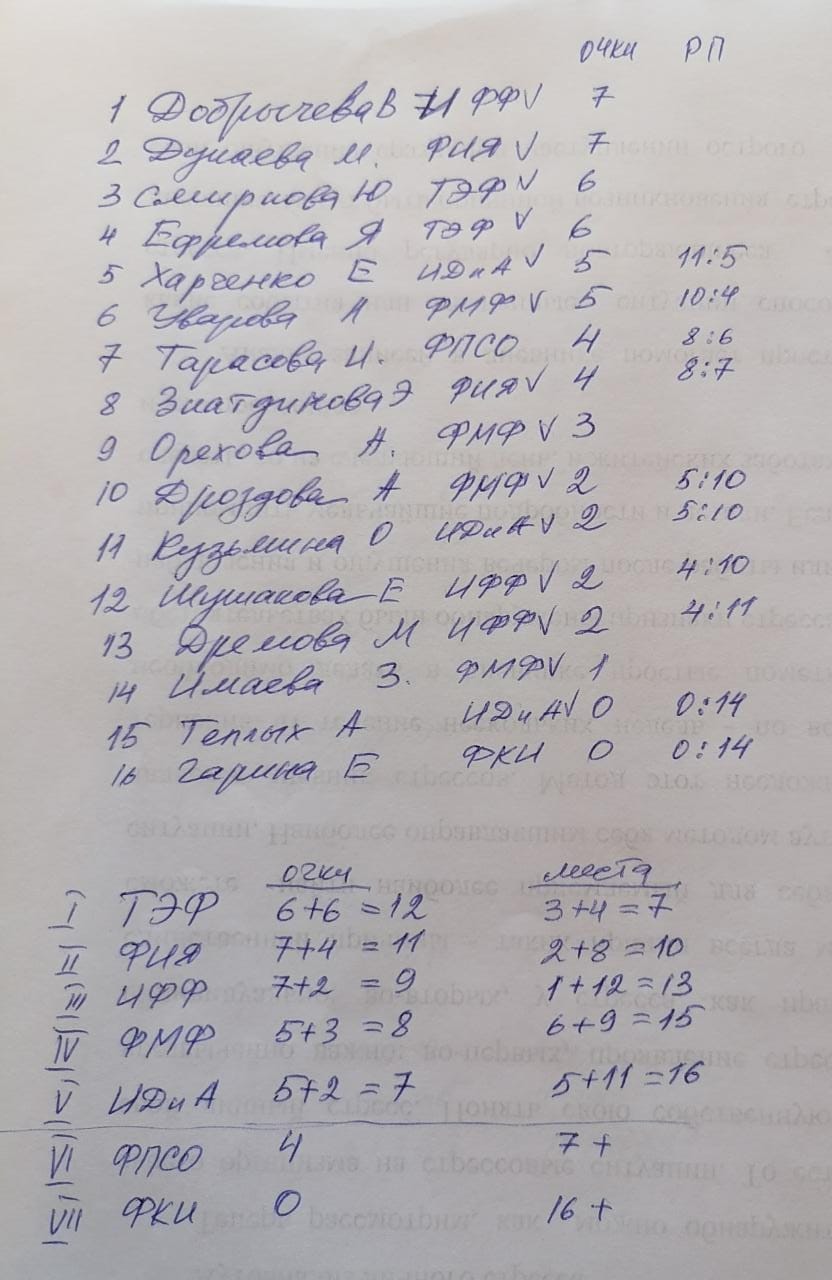 очки РП
1 Добрычева В ИФФ V 7
2 Дунаева М. ФИЯ V 7
3 Смирнова Ю ТЭФ V 6
4 Ефремова Я ТЭФ V 6
5 Харченко Е ИДиА V 5 11:5
6 Уварова А ФМФ V 5 10:4
7 Тарасова И. ФПСО 4 8:6
8 Зиатдинова Э ФИЯ V 4 8:7
9 Орехова А. ФМФ V 3
10 Дроздова А ФМФ V 2 5:10
11 Кузьмина О ИДиА V 2 5:10
12 Шушакова Е ИФФ V 2 4:10
13 Дремова М ИФФ V 2 4:11
14 Имаева З. ФМФ V 1
15 Теплых А ИДиА V 0 0:14
16 Гарина Е ФКИ 0 0:14
очки места
I ТЭФ 6+6 = 12 3+4 = 7
II ФИЯ 7+4 = 11 2+8 = 10
III ИФФ 7+2 = 9 1+12 = 13
IV ФМФ 5+3 = 8 6+9 = 15
V ИДиА 5+2 = 7 5+11 = 16
VI ФПСО 4 7 +
VII ФКИ 0 16 +